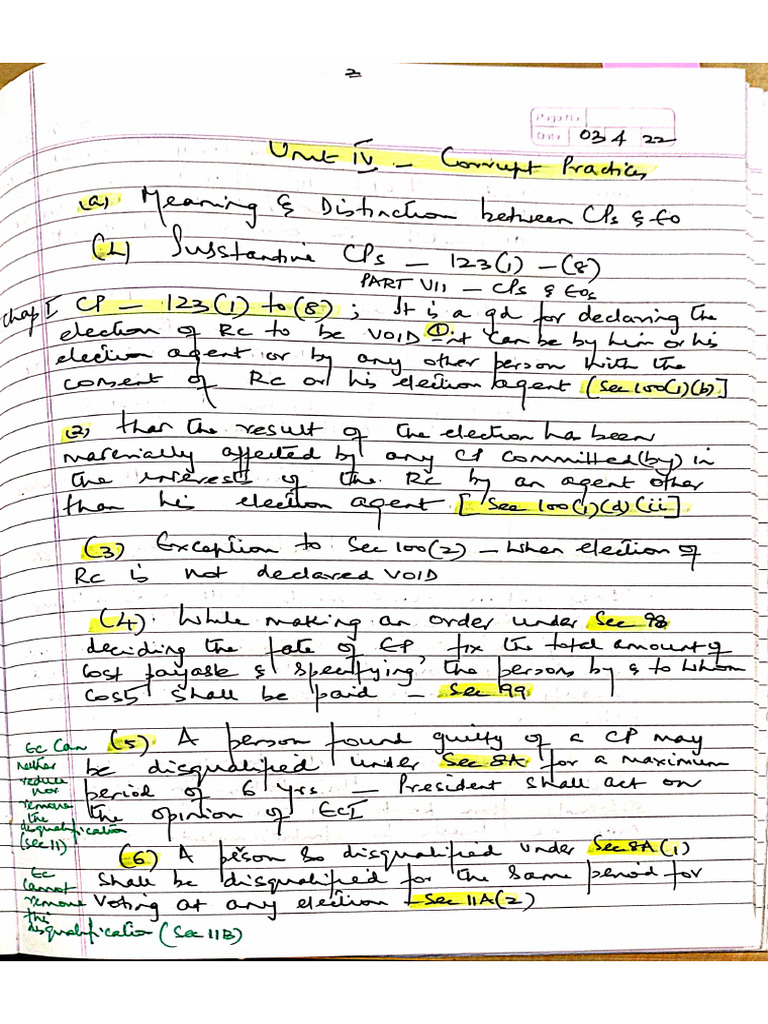 2
Page No
Date 03 4 22
Unit IV - Corrupt Practices
(a) Meaning & Distinction between CPs & EO
(b) Substantive CPs - 123(1) - (8)
PART VII - CPs & EOs
Chap I CP - 123(1) to (8) ; It is a gd for declaring the
election of RC to be VOID ① - it can be by him or his
election agent or by any other person with the
consent of RC or his election agent [Sec 100(1)(b)]
(2) that the result of the election has been
materially affected by any CP committed (by) in
the interests of the RC by an agent other
than his election agent [Sec 100(1)(d)(ii)]
(3) Exception to Sec 100(2) - when election of
RC is not declared VOID
(4) While making an order under Sec 98
deciding the fate of EP, fix the total amount of
cost payable & specifying the persons by & to whom
costs shall be paid - Sec 99
(5) A person found guilty of a CP may
be disqualified under Sec 8A for a maximum
period of 6 yrs - President shall act on
the opinion of ECI
EC can
neither
reduce
nor
remove
the
disqualification
(Sec 11)
(6) A person so disqualified under Sec 8A(1)
shall be disqualified for the same period for
voting at any election - Sec 11A(2)
EC
cannot
remove
the
disqualification (Sec 11B)